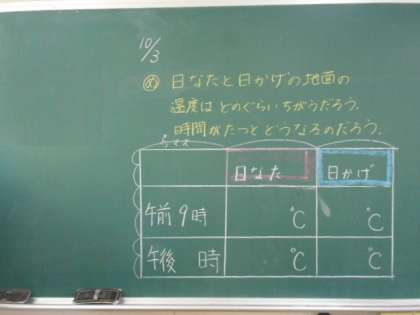 10/3
め 日なたと日かげの地面の
温度は どのぐらいちがうだろう。
時間がたつと どうなるのだろう。
日なた 日かげ
午前9時 ℃ ℃
午後 時 ℃ ℃